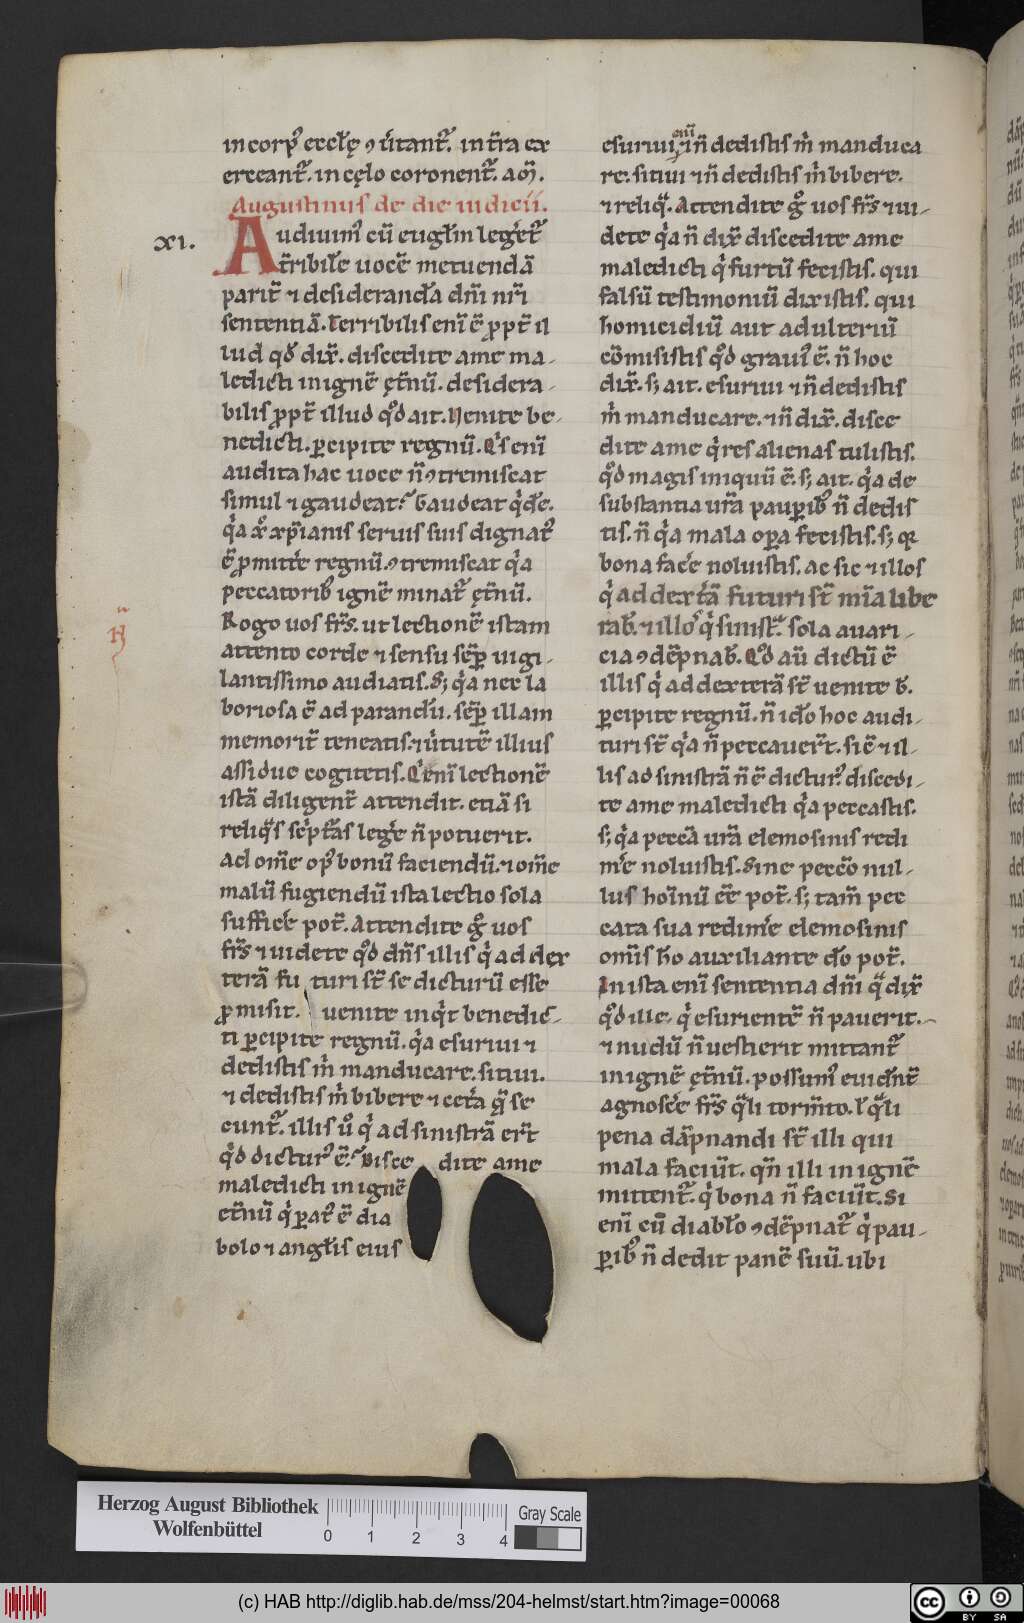 in corpꝰ eccłę ꝯũtant᷑. in t̃ra ex
ercean t᷑. in cęlo coronent᷑. aɱ̃.
Augustinus de die iudicii.
xi.
Audiuimꝰ cũ euglm̄ leger̃et᷑
t̃ribile uocẽ metuendã
parit̃ ⁊ desiderandã dñi nr̃i
sententiã. Terribilis eni ẽ ꝓpt̃ il
lud qd̃ dix̃. discedite a me ma-
ledicti in ignẽ ęt̃nũ. desidera-
bilis ꝓpt̃ illud qd̃ ait. Uenite be-
nedicti. ꝑcipite regnũ. Qͥs eni
audita hac uoce ñ ꝯtremiscat
simul ⁊ gaudeat? Gaudeat qͥdẽ.
qͥa xp̃ꝰ xp̃ianis seruis suis dignatꝰ
ẽ ꝓmittẽ regnũ. ꝯtremiscat qͥa
peccatoribꝰ ignẽ minat᷑ ęt̃nũ.
Rogo uos fr̃s. ut lectionẽ istam
attento corde ⁊ sensu sẽꝑ uigi-
lantissimo audiatis. S; qͥa nec la
boriosa ẽ ad parandũ. sẽꝑ illam
memorit̃ teneatis. ⁊ ũtutẽ illius
assidue cogitetis. Qͥ eni lectionẽ
istã diligent̃ attendit. etiã si
reliqͣs scͥpt᷑as legẽ ñ potuerit.
ad om̃e opꝰ bonũ faciendũ. ⁊ om̃e
malũ fugiendũ ista lectio sola
sufficẽ pot̃. Attendite g° uos
fr̃s ⁊ uidete qd̃ dñs illis qͥ ad dex
terã fu turi st̃ se dicturũ esse
ꝓmisit. uenite inqͥt benedic̃-
ti ꝑcipite regnũ. qͥa esuriui ⁊
dedistis m̃ manducare. sitiui.
⁊ dedistis m̃ bibere ⁊ cet̃a q̃ se
cunt᷑. illis ů qͥ ad sinistrã er̃t
qͥd dicturꝰ ẽ? Disce dite a me
maledicti in ignẽ
et̃nũ qͥ ꝑatꝰ ẽ dia
bolo ⁊ angłis eius
esuriui eni ⁊ ñ dedistis m̃ manduca
re. sitiui ⁊ ñ dedistis m̃ bibere.
⁊ reliqͣ. Attendite g° uos fr̃s ⁊ ui-
dete qͥa ñ dix̃ discedite a me
maledicti qͥ furtũ fecistis. qui
falsũ testimoniũ dixistis. qui
homicidiũ aut adulteriũ
cõmisistis qd̃ grauiꝰ ẽ. ñ hoc
dix̃. s; ait. esuriui ⁊ ñ dedistis
m̃ manducare. ⁊ ñ dix̃. disce
dite a me qͥ res alienas tulistis.
qd̃ magis iniquũ ẽ. s; ait. qͥa de
substantia ur̃a pauꝑibꝰ ñ dedis
tis. ñ qͥa mala oꝑa fecistis. s; qͥa
bona facẽ noluistis. ac sic ⁊ illos
qͥ ad dextͣã futuri st̃ mĩa libe
rab̃. ⁊ illoˢ qͥ sinist᷑. sola auari-
cia ꝯdẽpnab̃. Qd̃ aũ dictũ ẽ
illis qͥ ad dexterã st̃ uenite b̃.
ꝑcipite regnũ. ñ id̃o hoc audi-
turi st̃ qͥa ñ peccauer̃t. sic̃ ⁊ il-
lis ad sinistrã ñ ẽ dicturꝰ discedi-
te a me maledicti qͥa peccastis.
s; qͥa peccã ur̃a elemosinis redi
mẽ noluistis. Sine pecc̃o nul-
lus hoĩnũ eẽ pot̃. s; tam̃ pec
cata sua redimẽ elemosinis
om̃is h̃o auxiliante d̃o pot̃.
In ista eni sententia dñi qͣ dix̃
qd̃ ille, qͥ esurientẽ ñ pauerit.
⁊ nudũ ñ uestierit mittant᷑
in ignẽ ęt̃nũ. possumꝰ euid̃nt̃
agnoscẽ fr̃s qͣli torm̃to. ł qͣli
pena dãpnandi st̃ illi qui
mala faciũt. qñ illi in ignẽ
mittent᷑. qͥ bona ñ faciũt. Si
eni cũ diabło ꝯdẽpnat᷑ qͥ pau-
ꝑibꝰ ñ dedit panẽ suũ. ubi
Herzog August Bibliothek
Wolfenbüttel
0 1 2 3 4
Gray Scale
(c) HAB http://diglib.hab.de/mss/204-helmst/start.htm?image=00068
cc BY SA